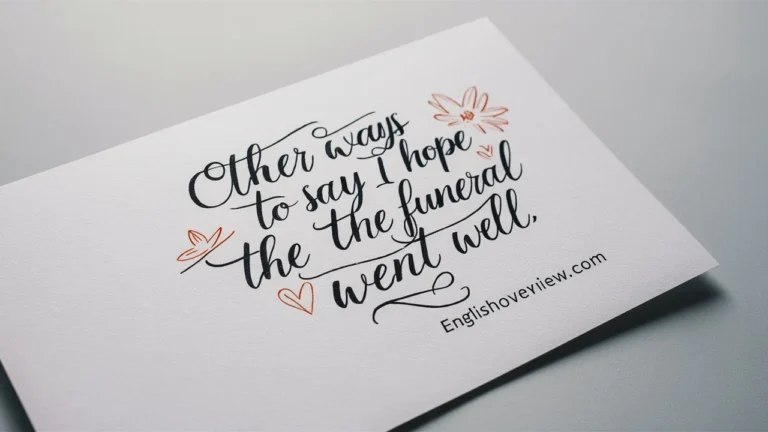 Other ways
to say I hope
the the funeral
went well,
Englishoveyiiew.com